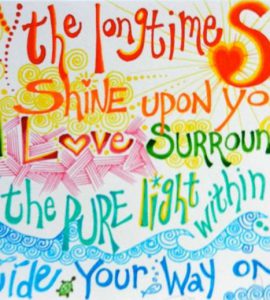 the longtime S
SHiNE upon yo
Love SURROUN
the PURE light within
uide Your Way on